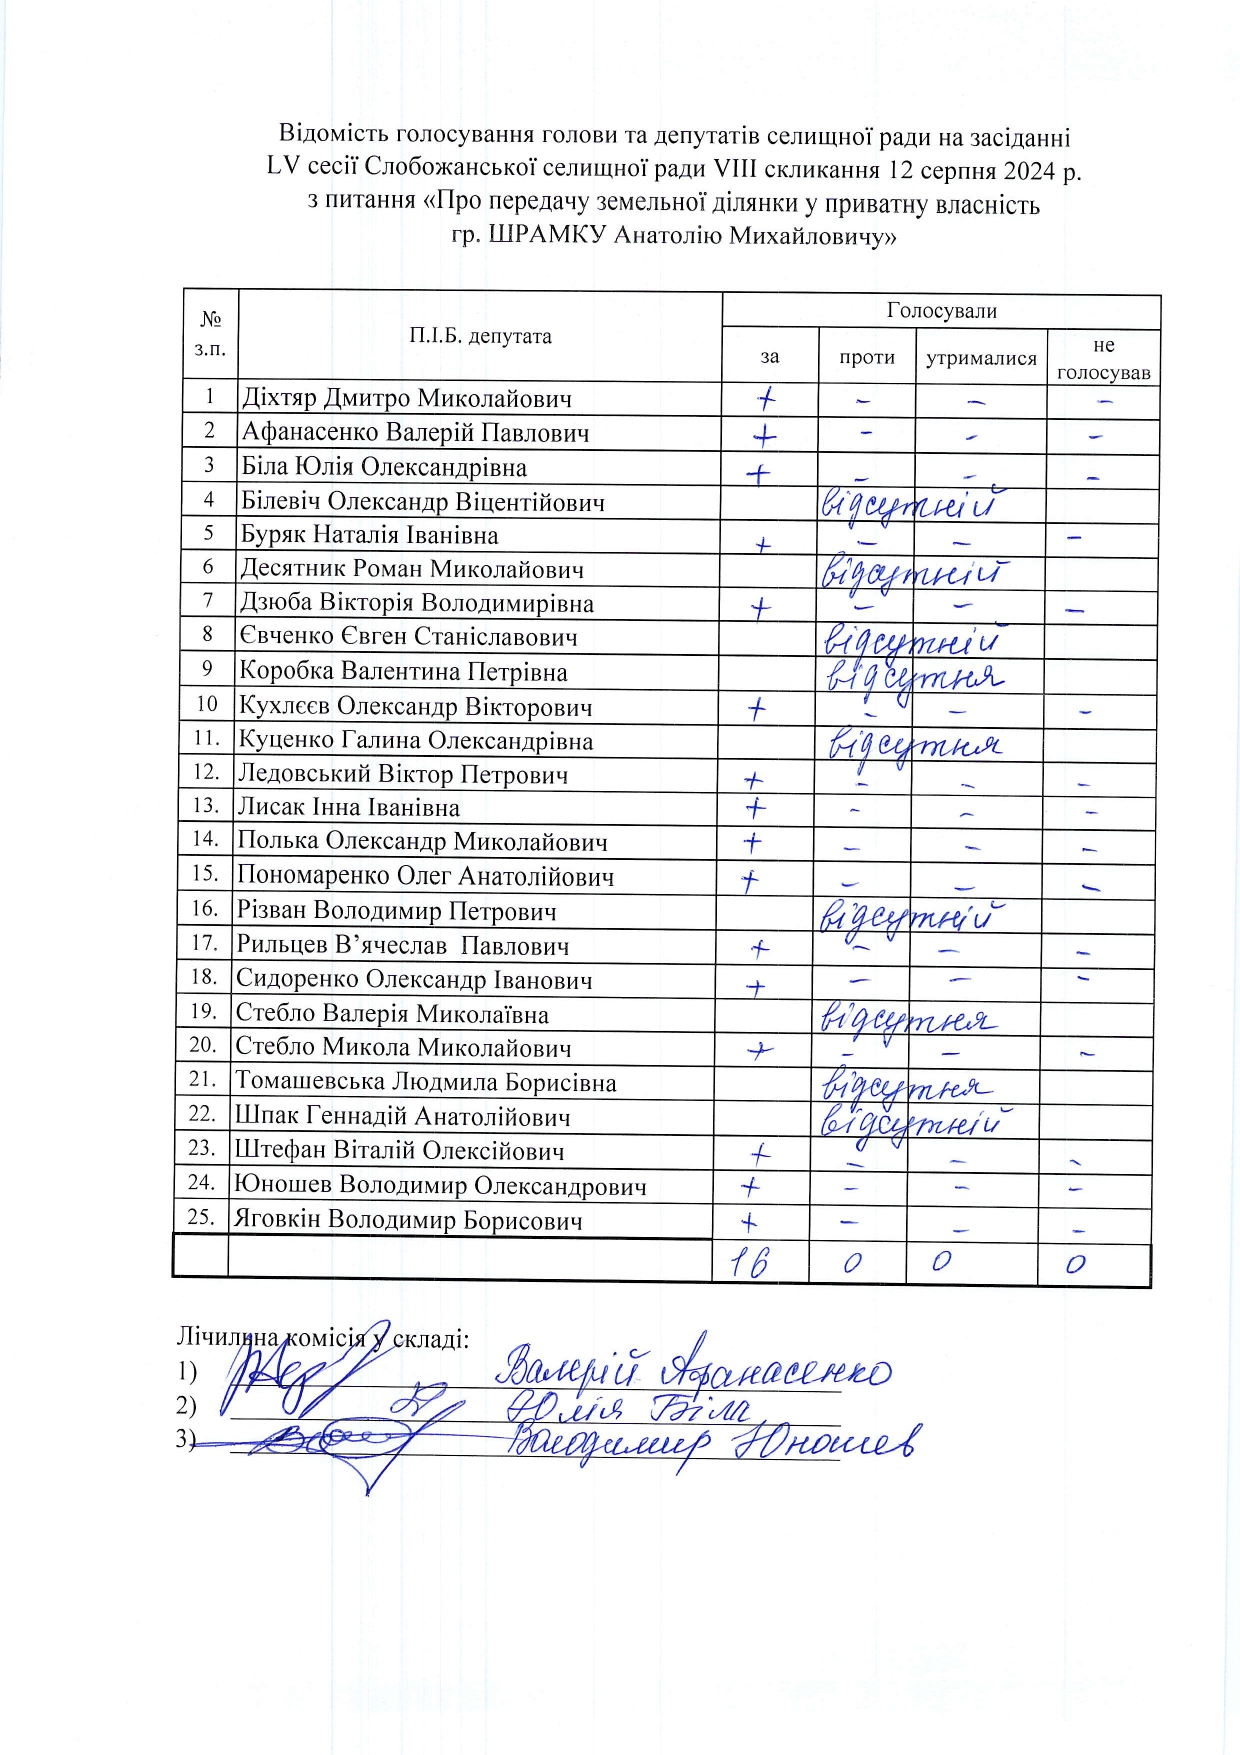 Відомість голосування голови та депутатів селищної ради на засіданні
LV сесії Слобожанської селищної ради VIII скликання 12 серпня 2024 р.
з питання «Про передачу земельної ділянки у приватну власність
гр. ШРАМКУ Анатолію Михайловичу»
№ з.п. П.І.Б. депутата Голосували
за проти утрималися не голосував
1 Діхтяр Дмитро Миколайович + - - -
2 Афанасенко Валерій Павлович + - - -
3 Біла Юлія Олександрівна + - - -
4 Білевіч Олександр Віцентійович відсутній
5 Буряк Наталія Іванівна + - - -
6 Десятник Роман Миколайович відсутній
7 Дзюба Вікторія Володимирівна + - - -
8 Євченко Євген Станіславович відсутній
9 Коробка Валентина Петрівна відсутня
10 Кухлєєв Олександр Вікторович + - - -
11. Куценко Галина Олександрівна відсутня
12. Ледовський Віктор Петрович + - - -
13. Лисак Інна Іванівна + - - -
14. Полька Олександр Миколайович + - - -
15. Пономаренко Олег Анатолійович + - - -
16. Різван Володимир Петрович відсутній
17. Рильцев В’ячеслав Павлович + - - -
18. Сидоренко Олександр Іванович + - - -
19. Стебло Валерія Миколаївна відсутня
20. Стебло Микола Миколайович + - - -
21. Томашевська Людмила Борисівна відсутня
22. Шпак Геннадій Анатолійович відсутній
23. Штефан Віталій Олексійович + - - -
24. Юношев Володимир Олександрович + - - -
25. Яговкін Володимир Борисович + - - -
16 0 0 0
Лічильна комісія у складі:
1) Валерій Афанасенко
2) Юлія Біла
3) Володимир Юношев